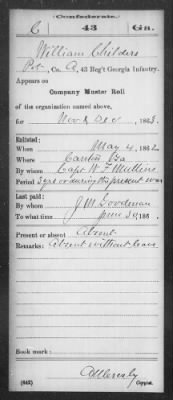 Confederate.
C 43 Ga.
William Childers
Pvt., Co. A, 43 Reg't Georgia Infantry.
Appears on
Company Muster Roll
of the organization named above,
for Nov & Dec, 1863.
Enlisted:
When May 4, 1862
Where Canton Ga
By whom Capt W. F. Mullins
Period 3 yrs or during the present war
Last paid:
By whom J. M. Goodman
To what time June 30, 186
Present or absent Absent
Remarks: Absent without leave
Book mark:
(642) Copyist.